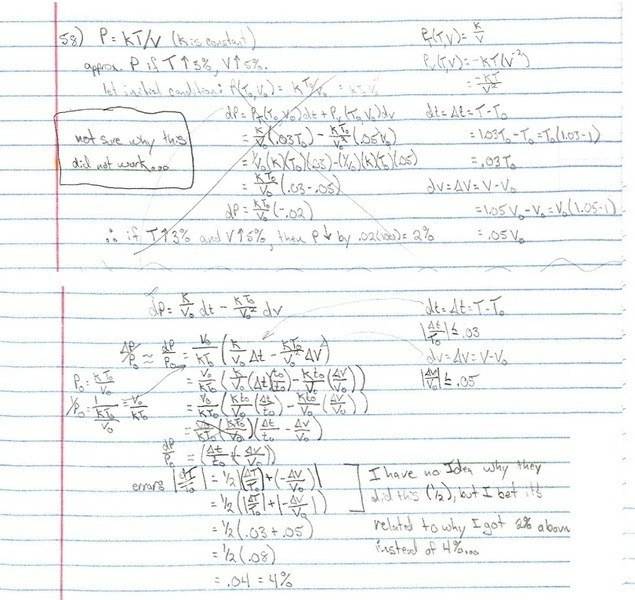 58) P = kT/V (k is constant)
approx. P if T↑3%, V↑5%.
let initial condition: P(T₀,V₀) = kT₀/V₀
P_T(T,V) = k/V
P_V(T,V) = -kT(V⁻²)
= -kT/V²
not sure why this
did not work...
dP = P_T(T₀,V₀)dt + P_V(T₀,V₀)dv
= k/V₀(.03T₀) - kT₀/V₀²(.05V₀)
= (1/V₀)(k)(T₀)(.03) - (1/V₀)(k)(T₀)(.05)
= kT₀/V₀(.03-.05)
dP = kT₀/V₀(-.02)
dt = Δt = T-T₀
= 1.03T₀-T₀ = T₀(1.03-1)
= .03T₀
dv = ΔV = V-V₀
= 1.05V₀-V₀ = V₀(1.05-1)
= .05V₀
∴ if T↑3% and V↑5%, then P↓ by .02(100) = 2%
dP = k/V₀ dt - kT₀/V₀² dv
ΔP/P₀ ≈ dP/P₀ = V₀/kT₀ (k/V₀ Δt - kT₀/V₀² ΔV)
P₀ = kT₀/V₀
1/P₀ = 1/(kT₀/V₀) = V₀/kT₀
= V₀/kT₀ (k/V₀ (Δt)(t₀/t₀) - kt₀/V₀ (ΔV/V₀))
= V₀/kT₀ (kt₀/V₀ (Δt/t₀) - kt₀/V₀ (ΔV/V₀))
= V₀/kT₀ (kT₀/V₀)(Δt/t₀ - ΔV/V₀)
dP/P₀ = (Δt/t₀ - ΔV/V₀)
dt = Δt = T-T₀
|Δt/t₀| ≤ .03
dv = ΔV = V-V₀
|ΔV/V₀| ≤ .05
errors = 1/2|ΔT/T₀ + (-ΔV/V₀)|
= 1/2(|ΔT/T₀| + |-ΔV/V₀|)
= 1/2(.03 + .05)
= 1/2(.08)
= .04 = 4%
I have no Idea why they
did this (1/2), but I bet its
related to why I got 2% above
instead of 4%...